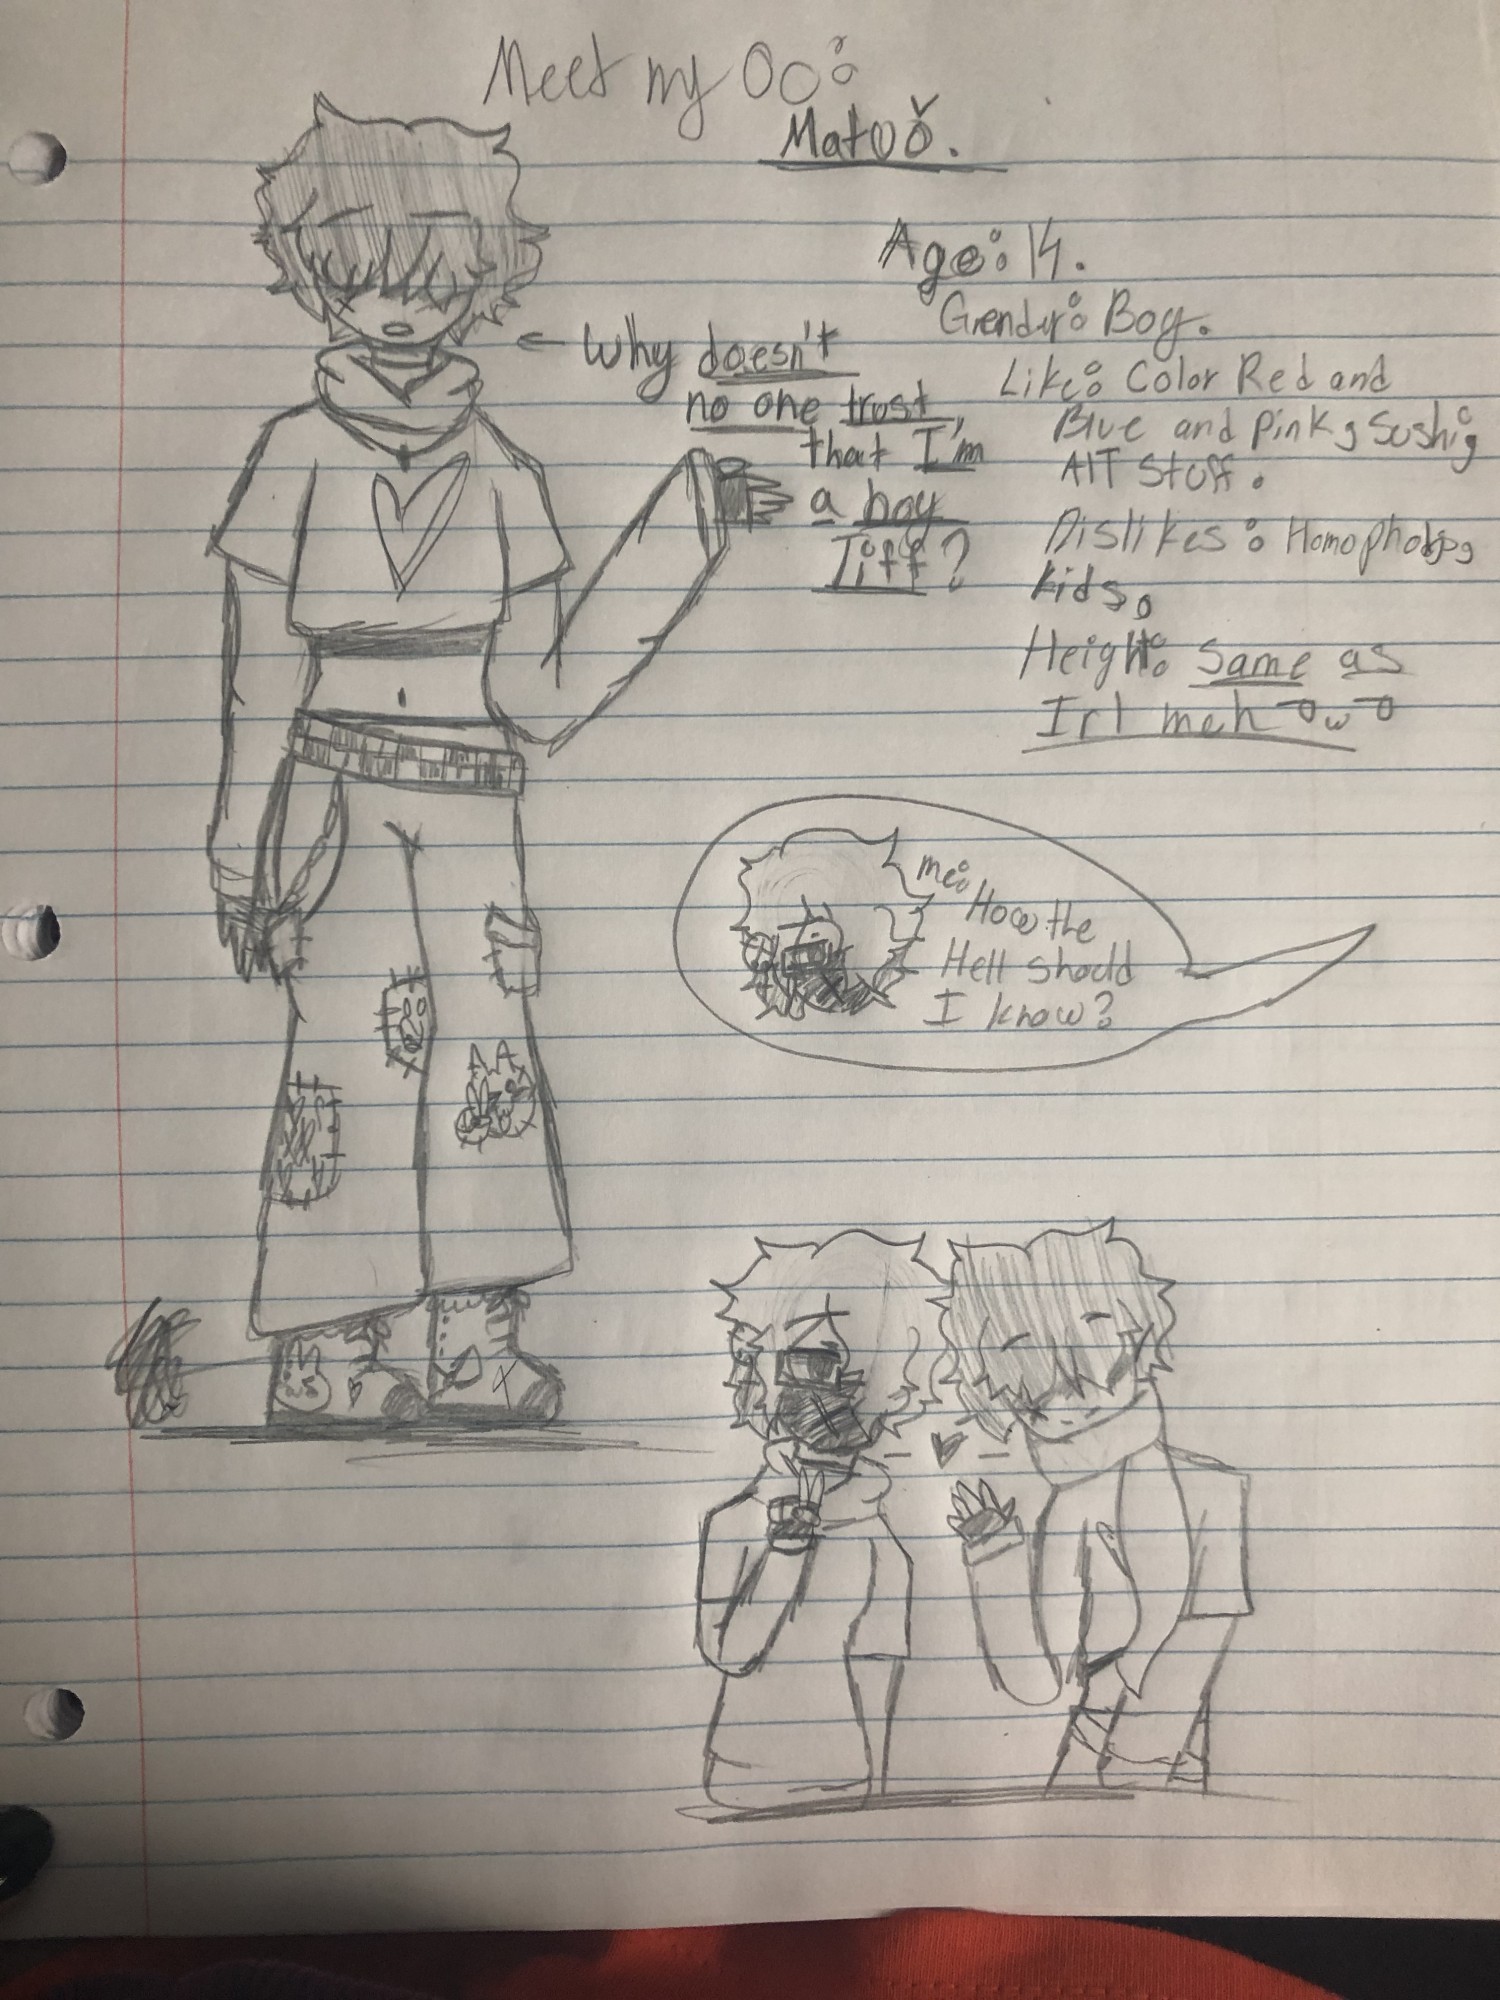 Meet my Oc:
Matuǒ.
Age: 14.
Gender: Boy.
Like: Color Red and
Blue and pink, Sushi,
Alt stuff.
Dislikes: Homophobis,
kids,
Height: Same as
Irl meh
← Why doesn't
no one trust
that I'm
a boy
Tiff?
me:
How the
Hell should
I know?